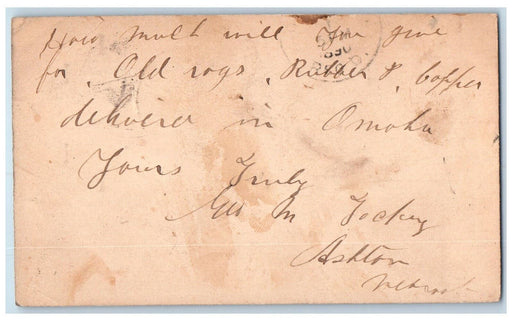 How much will You give
for Old rags, Rubber & Copper
delivered in Omaha
Yours Truly
Geo M
Ashton